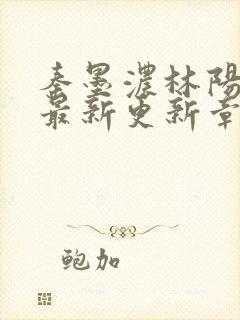 秦墨濃林陽
最新更新章
鲍加